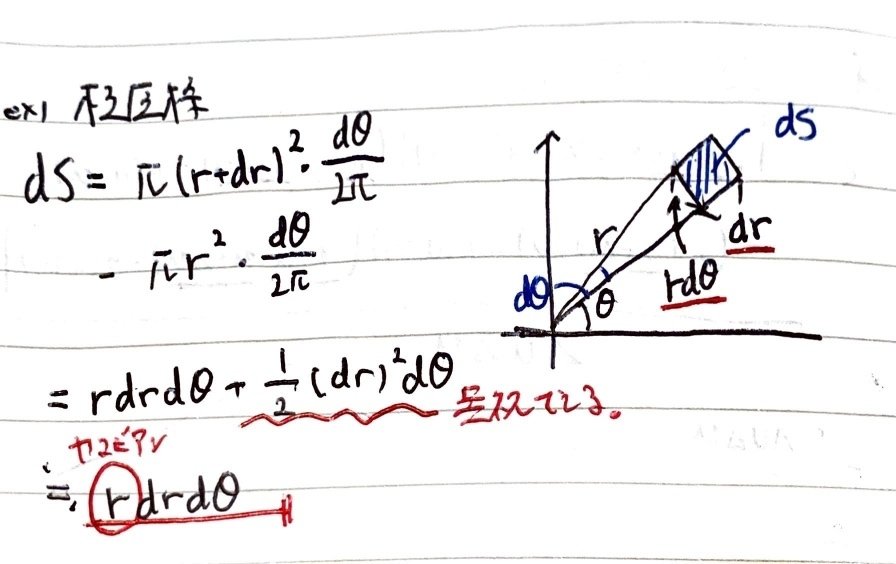 ex1 極座標
dS = π(r+dr)²・dθ/2π
- πr²・dθ/2π
= rdrdθ + 1/2 (dr)²dθ 無視できる。
ヤコビアン
≒ rdrdθ
dS
r
dr
rdθ
dθ
θ